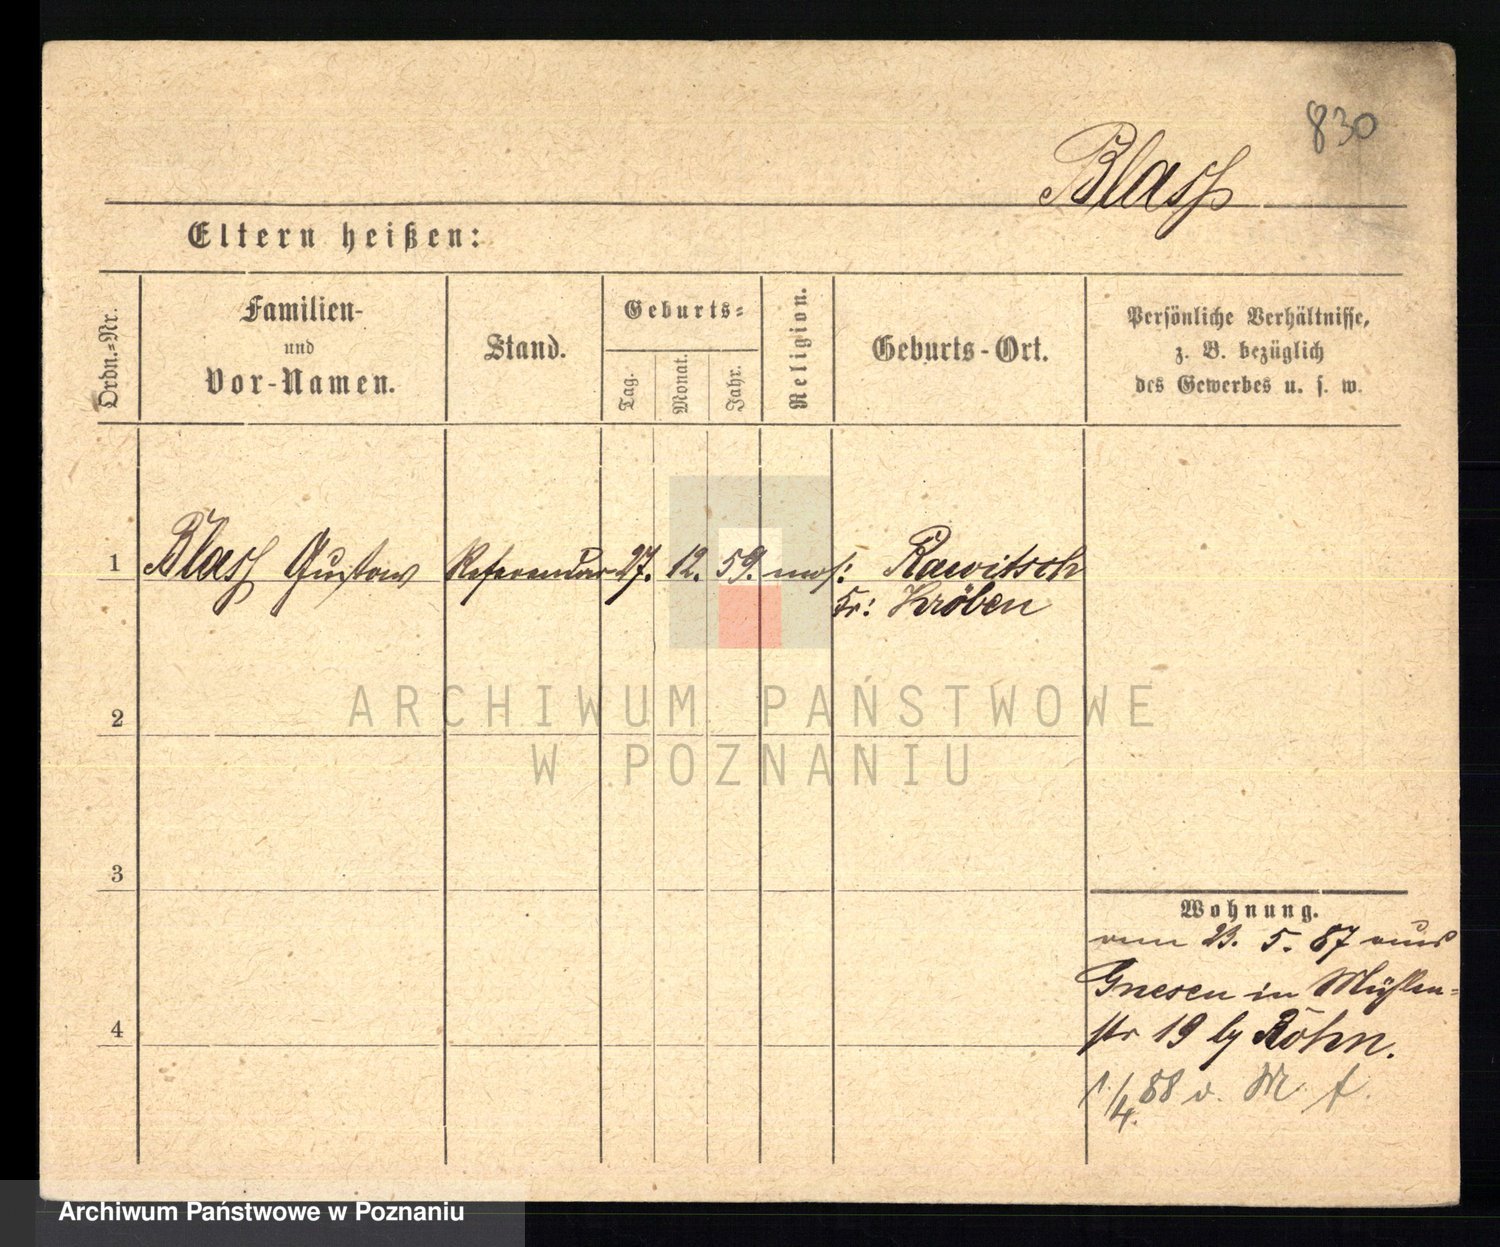 830
Blass
Eltern heißen:
Ordn.=Nr.
Familien-
und
Vor-Namen.
Stand.
Geburts=
Tag.
Monat.
Jahr.
Religion.
Geburts-Ort.
Persönliche Verhältnisse,
z. B. bezüglich
des Gewerbes u. s. w.
1 Blass Gustav Referendar 27. 12. 59. mos: Rawitsch
Kr: Kröben
2
3
4
Wohnung.
23. 5. 87 aus
Gnesen in Mühlen=
str 19 by Röhn.
1/4. 88 v. M.
ARCHIWUM PAŃSTWOWE
W POZNANIU
Archiwum Państwowe w Poznaniu